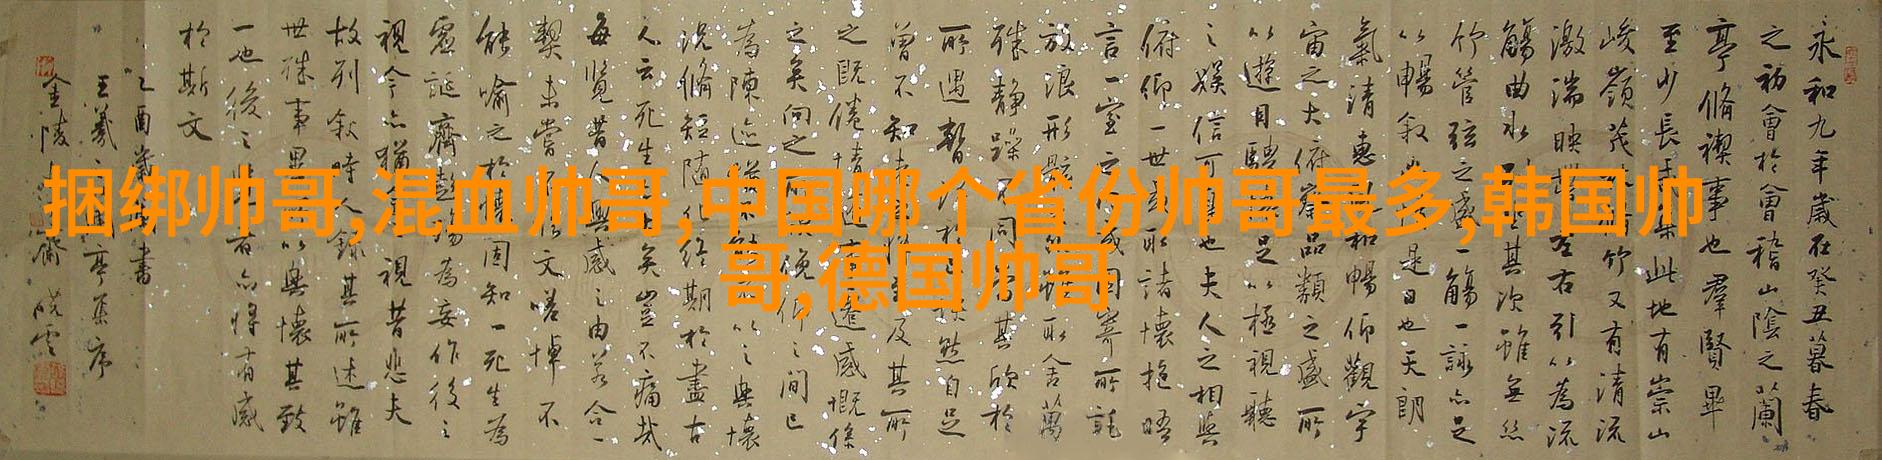 捆绑帅哥,混血帅哥,中国哪个省份帅哥最多,韩国帅
哥,德国帅哥
永和九年歲在癸丑暮春
之初會於會稽山陰之蘭
亭脩禊事也羣賢畢
至少長咸集此地有崇山
峻嶺茂林脩竹又有清流
激湍映帶左右引以為流
觴曲水列坐其次雖無絲
竹管弦之盛一觴一詠亦足
以暢敘幽情是日也天朗
氣清惠風和暢仰觀宇
宙之大俯察品類之盛所
以遊目騁懷足以極視聽
之娛信可樂也夫人之相與
俯仰一世或取諸懷抱晤
言一室之內或因寄所託
放浪形骸之外雖取舍萬
殊靜躁不同當其欣於
所遇暫得於己快然自足
曾不知老之將至及其所
之既倦情隨事遷感慨係
之矣向之所欣俛仰之間已
為陳迹猶不能不以之興懷
況脩短隨化終期於盡古
人云死生亦大矣豈不痛哉
每覽昔人興感之由若合一
契未嘗不臨文嗟悼不
能喻之於懷固知一死生為
虛誕齊彭殤為妄作後之
視今亦猶今之視昔悲夫
故列敘時人錄其所述雖
世殊事異所以興懷其致
一也後之覽者亦將有感
於斯文
乙酉 書
王羲之蘭亭集序
金陵